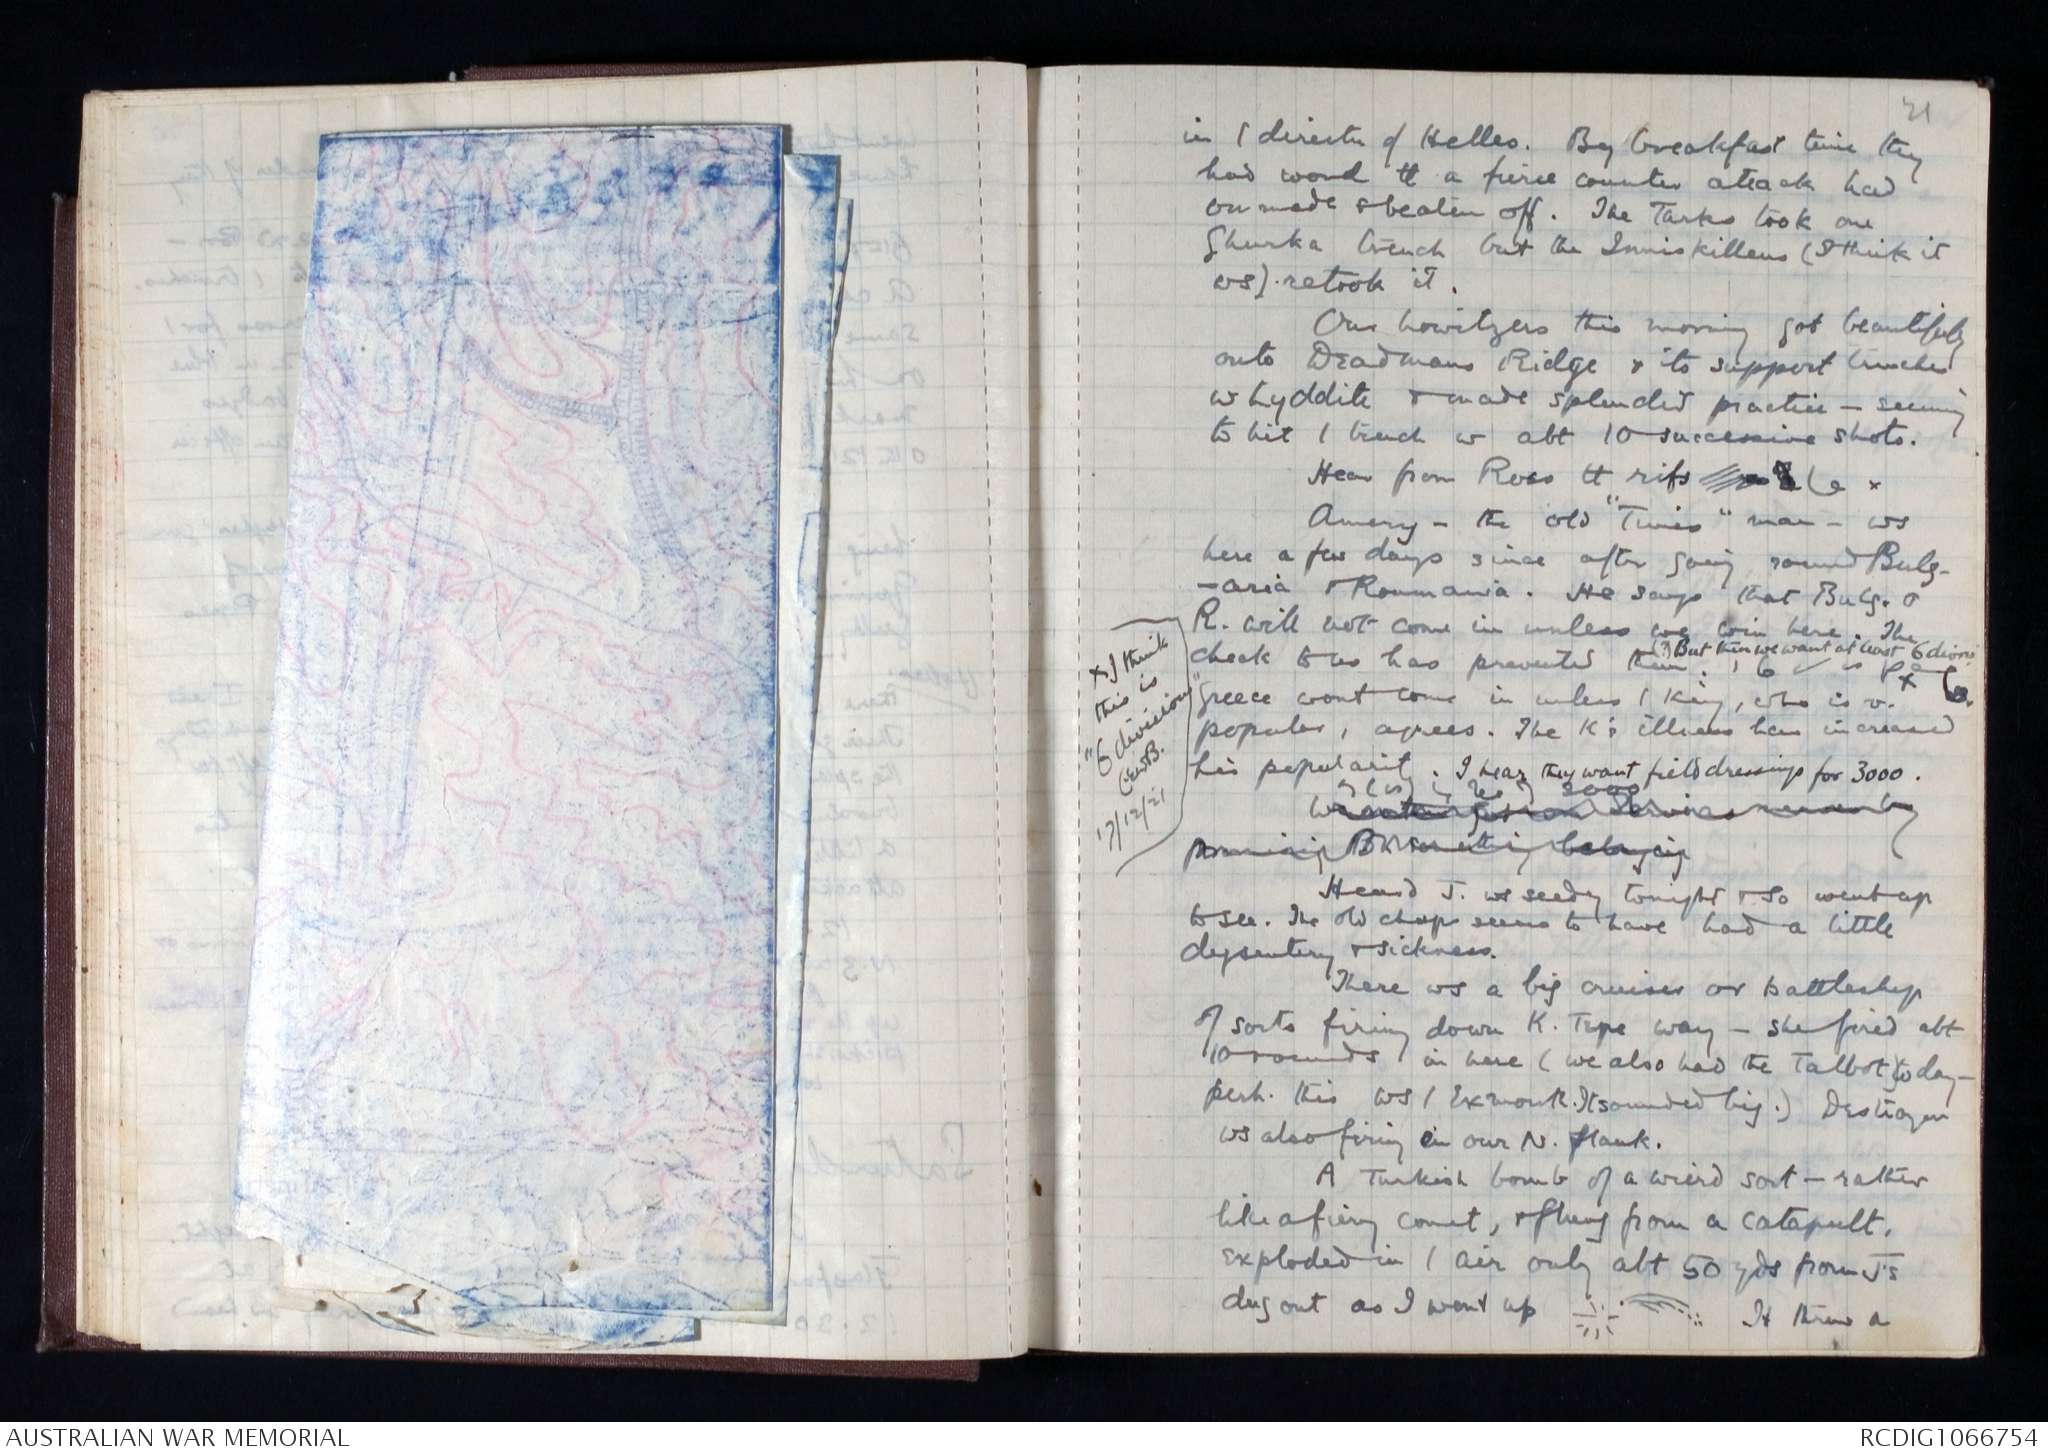 21
in / directn of Helles. By breakfast time they
had word tt a fierce counter attack had
been made & beaten off. The Turks took one
Ghurka trench but the Inniskillens (I think it
ws) retook it.
Our howitzers this morning got beautifully
onto Deadmans Ridge & its support trenches
w lyddite & made splendid practice — seeming
to hit / trench w abt 10 successive shots.
Hear from Ross tt
Amery — the old "Times" man — ws
here a few days since after going round Bulg-
-aria & Roumania. He says that Bulg. &
R. will not come in unless we win here. The
check to us has prevented them.
(?) But then we want at least 6 divns
Greece wont come in unless / King, who is v.
popular, agrees. The K's illness has increased
his popularity. I hear they want field dressings for 3000.
x I think
this is
"6 divisions"
CEWB.
17/12/21
Heard J. ws seedy tonight & so went up
to see. The old chap seems to have had a little
dysentery & sickness.
There ws a big cruiser or battleship
of sorts firing down K. Tepe way — she fired abt
10 rounds in here (we also had the Talbot today —
perh. this ws / Exmouth. It sounded big.) Destroyer
ws also firing on our N. flank.
A Turkish bomb of a wierd sort — rather
like a fiery comet, & flung from a catapult,
exploded in / air only abt 50 yds from J's
dug out as I went up It threw a
AUSTRALIAN WAR MEMORIAL
RCDIG1066754